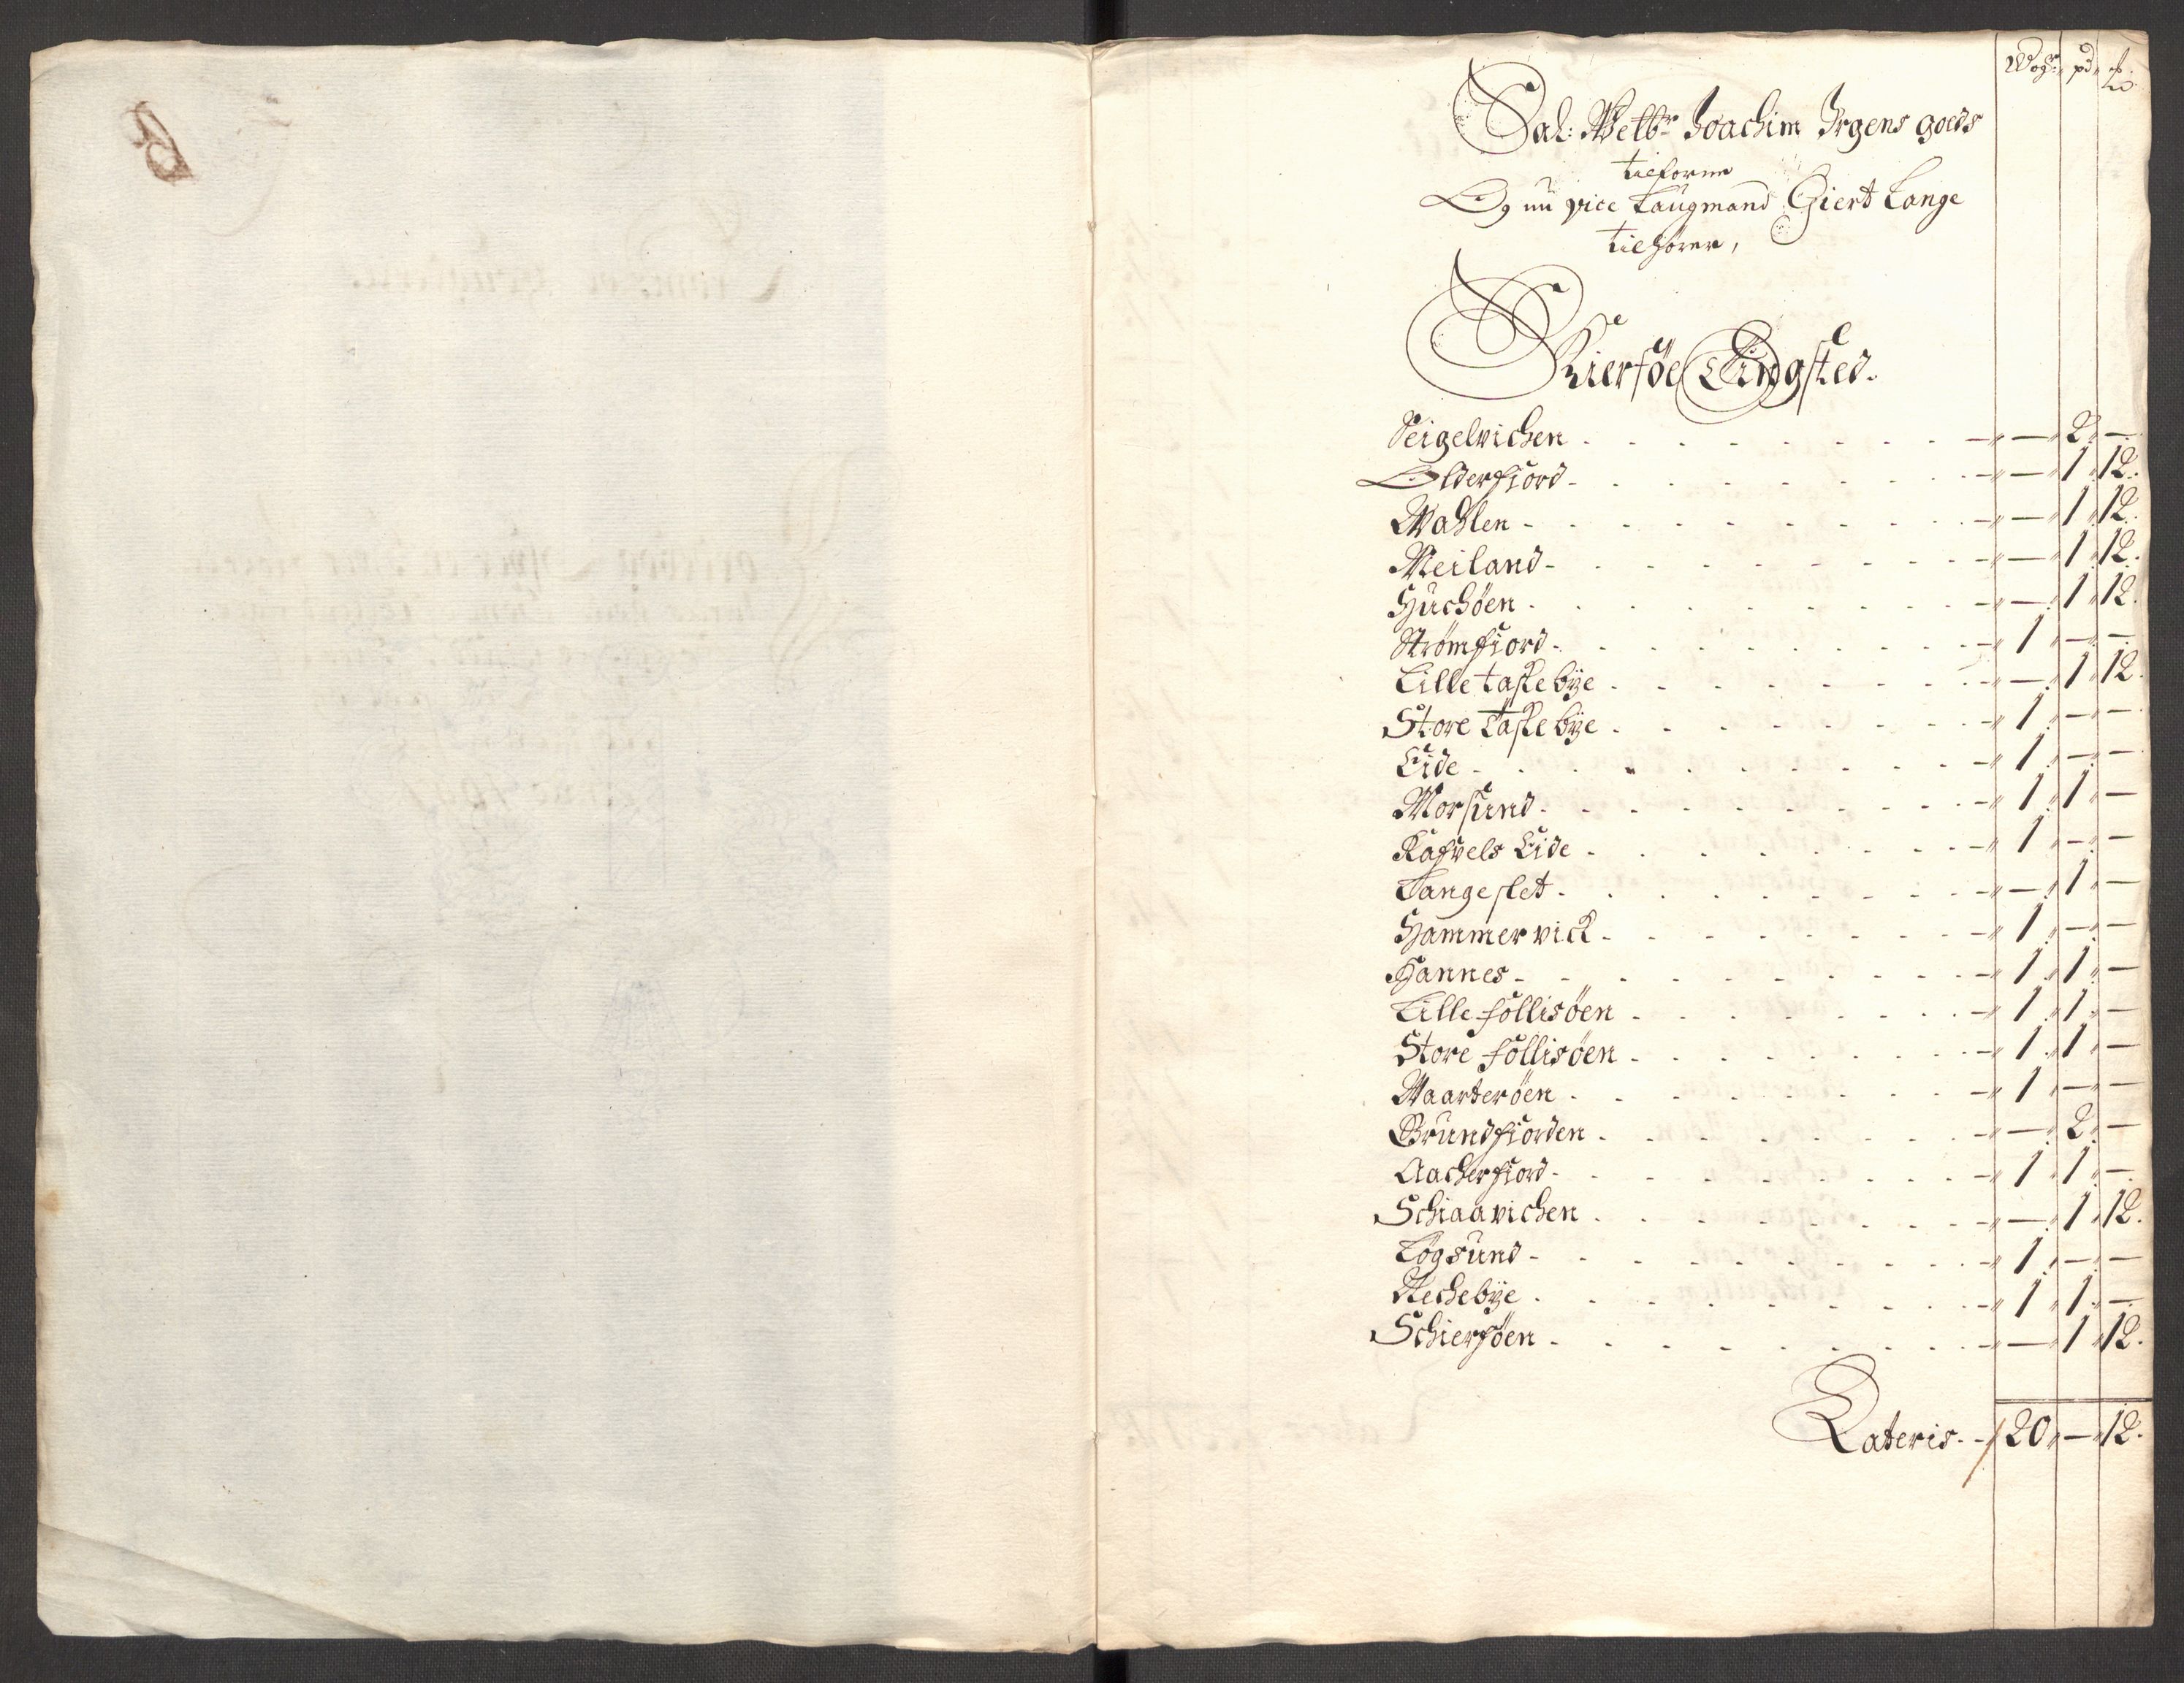 Wogr pd ℔
Sal: Welb: Joachim Irgens goeds
tilforne
Og nu vice Laugmand Giert Lange
tilhører,
Skierføe Tingsted.
Seigelvichen - - 2 -
Olderfiord - - 1 12.
Wahlen - - 1 12.
Meiland - - 1 12.
Huchöen - - 1 12.
Strømfiord - 1 - -
Lille taskebye - - 1 12.
Store taskebye - 1 - -
Eide - 1 - -
Morsund - 1 1 -
Rafvels Eide - 1 - -
Langeslet - - 1 -
Hammervick - 1 - -
Hannes - 1 1 -
Lille follisöen - 1 1 -
Store follisöen - 1 1 -
Waarteröen - 1 - -
Grundfiorden - - 2 -
Aacherfiord - 1 1 -
Schiaavichen - - 1 12.
Løgsund - 1 - -
Stechebye - 1 1 -
Schierföen - - 1 12.
Lateris - 20 - 12.